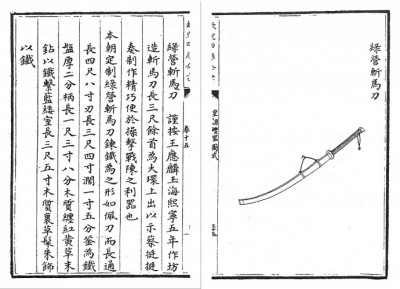 綠營斬馬刀
皇朝禮器圖式
卷十五
綠營斬馬刀 謹按王應麟玉海熙寧五年作坊
造斬馬刀長三尺餘首為大環上出以示蔡挺挺
奏制作精巧便於操擊戰陣之利器也
本朝定制綠營斬馬刀鍊鐵為之形如佩刀而長通
長四尺八寸刃長三尺四寸濶一寸五分銎為鐵
盤厚二分柄長一尺三寸八分木質纏紅黃革末
鈷以鐵繫藍緌室長三尺五寸木質裹革髹朱飾
以鐵